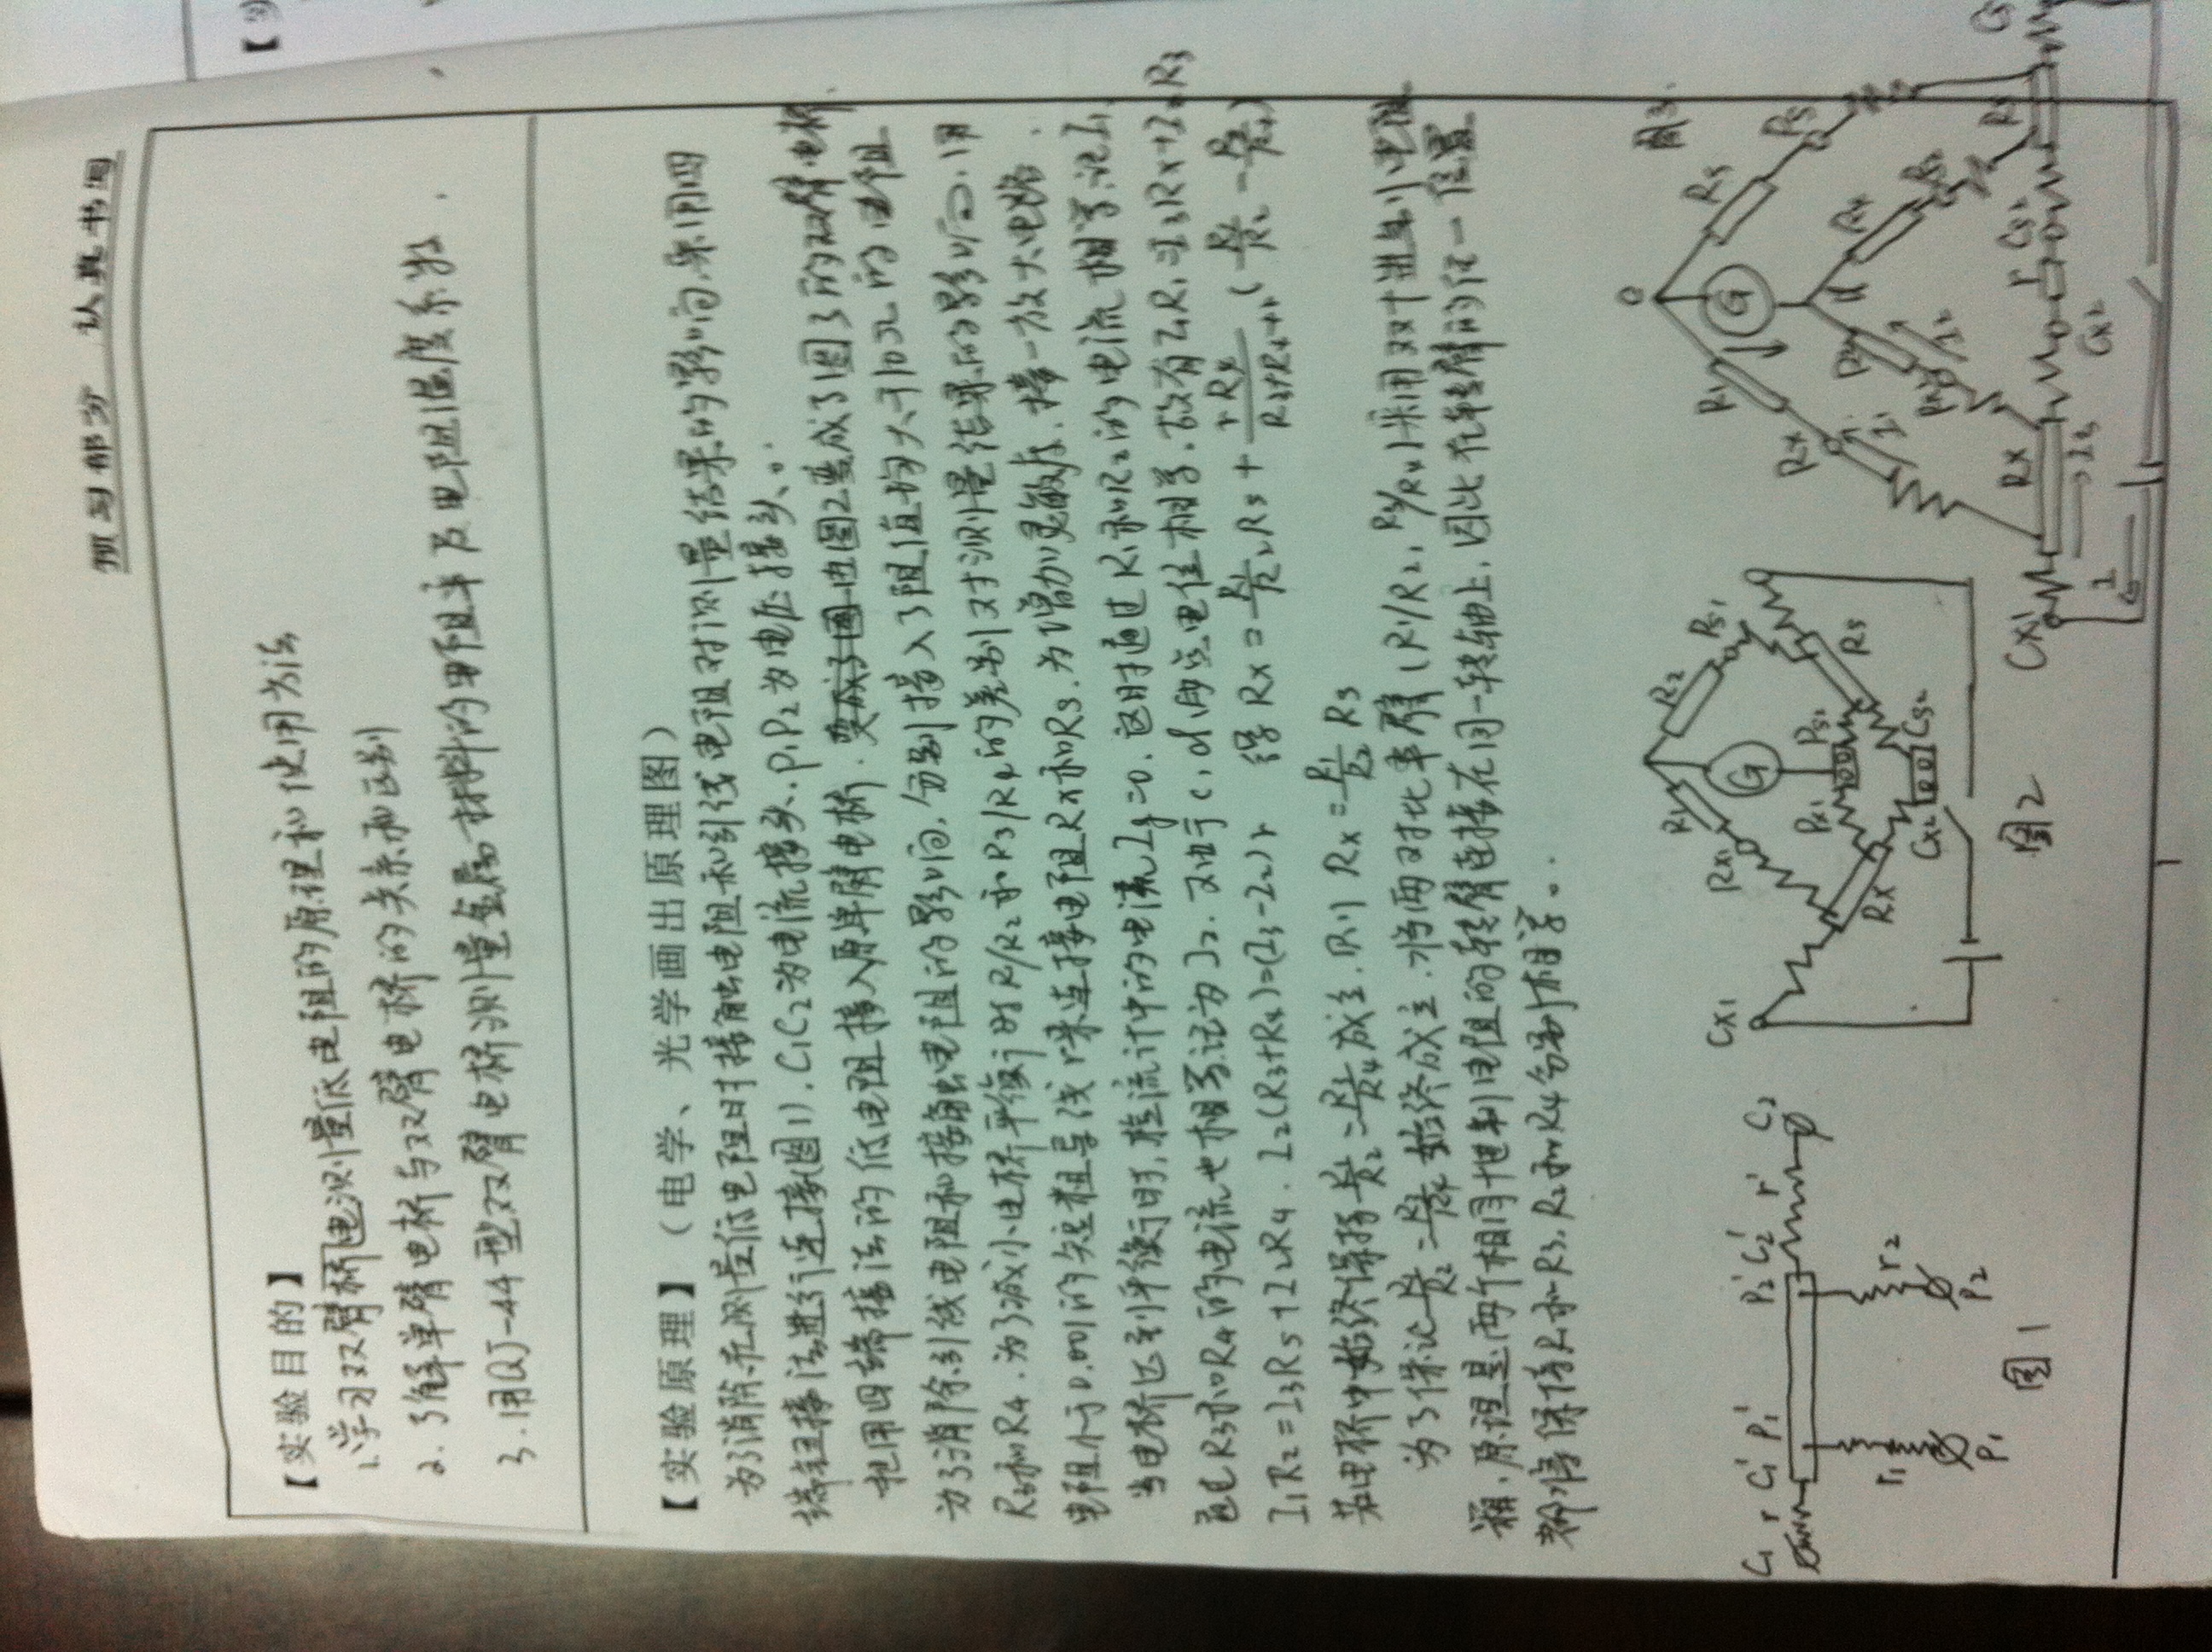 预习部分 认真书写
【实验目的】
1.学习双臂桥电测量低电阻的原理和使用方法
2.了解单臂电桥与双臂电桥的关系和区别
3.用QJ-44型双臂电桥测量金属材料的电阻率及电阻温度系数.
【实验原理】(电学、光学画出原理图)
为了消除在测量低电阻时接触电阻和引线电阻对测量结果的影响,采用四
端钮接法进行连接(图1).C1C2为电流接头.P1P2为电压接头。
把用四端接法的低电阻接入原单臂电桥.变成了图 由图2变成了图3的双臂电桥.
为了消除引线电阻和接触电阻的影响,分别接入了阻值均大于10Ω的电阻
R3和R4.为了减小电桥平衡时R1/R2和R3/R4的差别对测量结果的影响.用
电阻小于0.001的短粗导线r来连接电阻Rx和Rs.为增加灵敏度,接一放大电路.
当电桥达到平衡时,检流计中的电流Ig=0.这时通过R1和R2的电流相等记I1
通过R3和R4的电流也相等记为I2.又由于c,d两点电位相等.故有I1R1=I3Rx+I2R3
I1R2=I3Rs+I2R4. I2(R3+R4)=(I3-I2)r 得 Rx=R1/R2 Rs + rR4/(R3+R4+r) (R1/R2 - R3/R4)
若电桥中始终保持R1/R2=R3/R4成立.则 Rx=R1/R2 Rs
为了保证R1/R2=R3/R4始终成立.将两对比率臂(R1/R2,R3/R4)采用双十进制电阻
箱.原理是两个相同十进制电阻的转臂连接在同一转轴上.因此在转臂的任一位置
都将保持R1和R3,R2和R4分别相等。
C1 r C1' P1' P2' C2' r' C2
r1 r2
P1 P2
图1
Cx1 Rx1 R1 R2 Ps1
G
Px1 Ps2
Rx Rs
Cx2 Cs2
图2
图3.
R1 G Rs
Rx Ps
I1 R4
I2
Cx1 Rx r Cs2
I3 Cx2
I
1